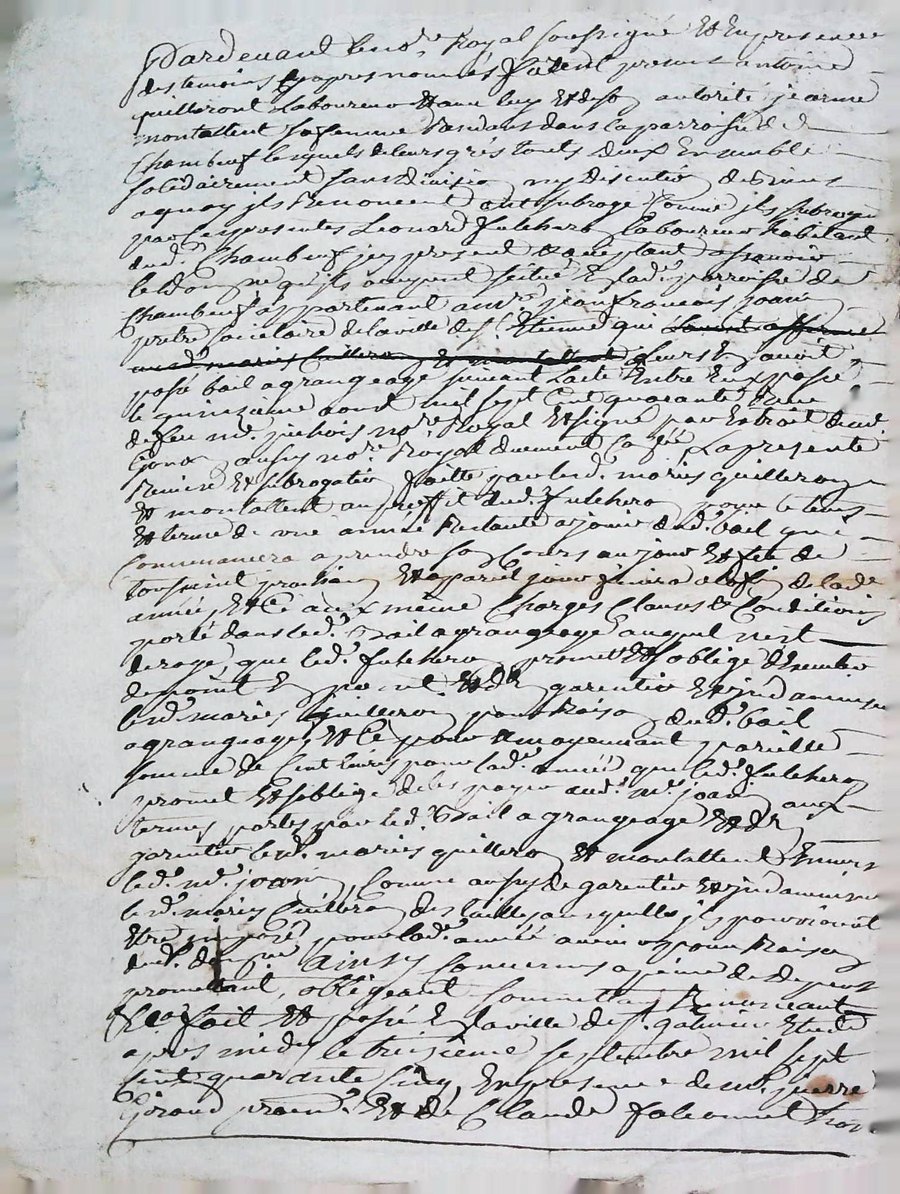 Pardevant le no.re Royal soussigné et en presence
des temoins cy apres nommés furent presents antoine
quilleront laboureur et avec luy et de son autorite jeanne
montallent sa femme Residants dans la parroisse de
Chambeuf lesquels de leurs grés touts deux Ensemble
solidairement sans division ny discution de biens
a quoy ils Renoncent ont subrogé comme ils subrogent
par ces presentes Leonard fulchero laboureur habitant
dud. Chambeuf jcy present et acceptant assavoir
le Domaine qu'ils occupent scitué En lad. parroisse de
Chambeuf appartenant a m.re jean francois joanin
pretre societaire de la ville de S.t Etienne qui leurs En avoit
passé bail a grangeage suivant l'acte Entre Eux passé
le quinzieme aout mil sept Cent quarante
de feu m.e no.re Royal Et signé par Extrait dud.
aussy no.re Royal duement la presente
Remise Et subrogation faitte par led. mariés quilleron
et montallent au proffit dud. fulchero pour le tems
et terme de une année Restante a jouir dud. bail qui
Commencera a prendre son Cours au jour et fete de
toussaint prochain Et a pareil jour finira a la fin de lad.
année, Et Ce aux même Charges Clauses et Conditions
porté dans led. Bail a grangeage auquel n'est
derogé, que led. fulchero promet et s'oblige d'Executer
de point En point Et de garentir Et jndamniser
lesd. mariés quilleron pour Raison dud. bail
a grangeage, Et Ce pour et moyennant pareille
somme de Cent livres pour lad. année que led. fulchero
promet Et s'oblige de les payer aud. m.re joanin aux
termes portés par led. Bail a grangeage Et de
garentir lesd. mariés quilleron et montallent Envers
led. m.re joanin, Comme aussy de garentir et jndamniser
lesd. mariés quilleron des tailles auxquelles jls pourroient
Etre jmposé pour lad. année avenir pour Raison
dud. domaine Ainsy Convenus a peine de depens
promettant, obligeant soumettant Renonceant
fait Et passé En la ville de S.t galmier Etude
apres midy le treizieme septembre mil sept
Cent quarante Cinq, En presence de m.e pierre
Giraud Et de Claude falconnet